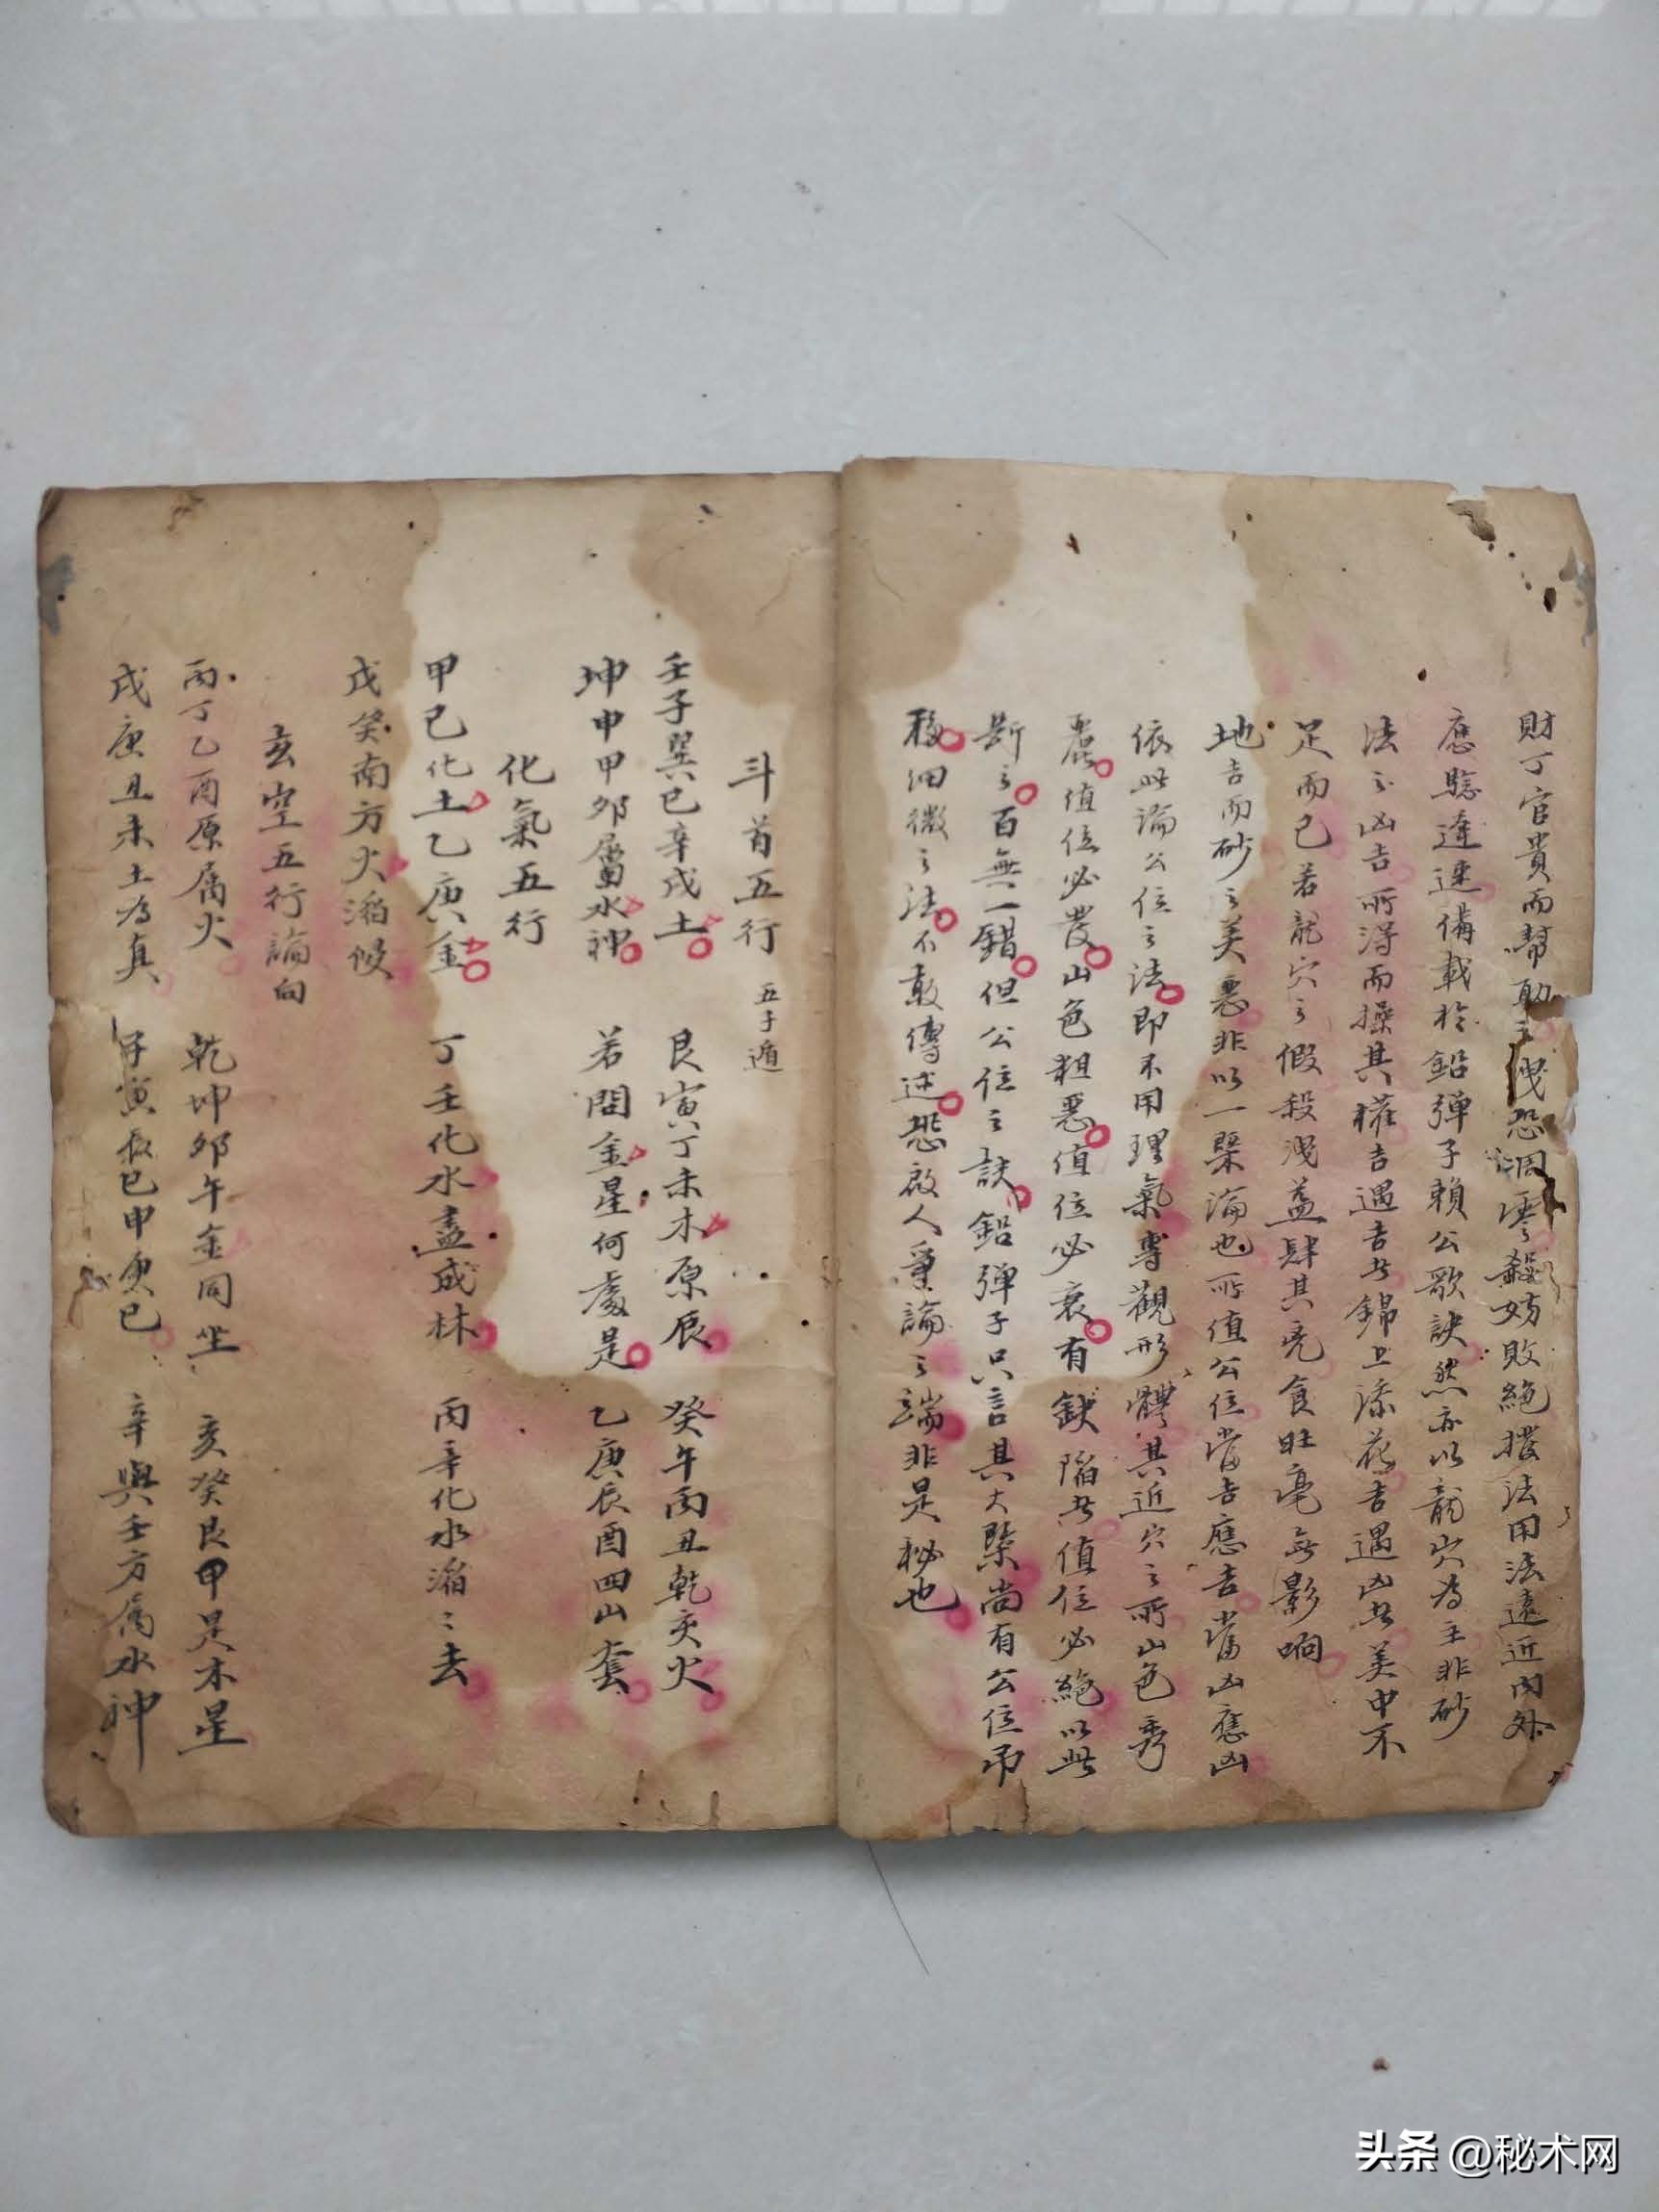 財丁官貴而幫助之洩恐凋零殺妨敗絕撥法用法遠近內外
應驗遲速備載於鉛彈子賴公歌訣然亦以龍穴為主非砂
法之凶吉所得而操其權吉遇吉者錦上添花吉遇凶者美中不
足而已若龍穴之假殺洩益肆其兇食旺毫無影响
地吉而砂之美惡非以一槩論也所值公位當吉應吉當凶應凶
依此論公位之法即不用理氣專觀形體其近穴之所山色秀
麗值位必發山色粗惡值位必衰有缺陷者值位必絕以此
斷之百無一錯但公位之訣鉛彈子只言其大槩尚有公位吊
移細微之法不敢傳述恐啟人爭論之端非是秘也
斗首五行 五子遁
壬子巽巳辛戌土 艮寅丁未木原辰 癸午丙丑乾亥火
坤申甲卯屬水神 若問金星何處是 乙庚辰酉四山套
化氣五行
甲己化土乙庚金 丁壬化水盡成林 丙辛化水滔之去
戊癸南方火滔候
玄空五行論向
丙丁乙酉原屬火 乾坤卯午金同坐 亥癸艮甲是木星
戌庚丑未土為真 子寅辰巳申庚巳 辛與壬方屬水神
头条 @秘术网